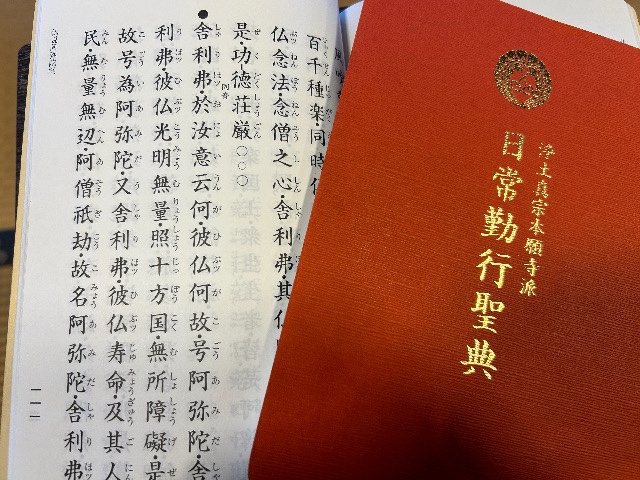 浄土真宗本願寺派
日常勤行聖典
百千種楽・同時
仏念法念僧之心・舎利弗・其
是・功徳荘厳○○○
同音
●舎利弗・於汝意云何・彼仏何故・号阿弥陀・舎
利弗・彼仏光明無量・照十方国・無所障礙・是
故号為阿弥陀・又舎利弗・彼仏寿命・及其人
民・無量無辺・阿僧祇劫・故名阿弥陀・舎利弗
一一